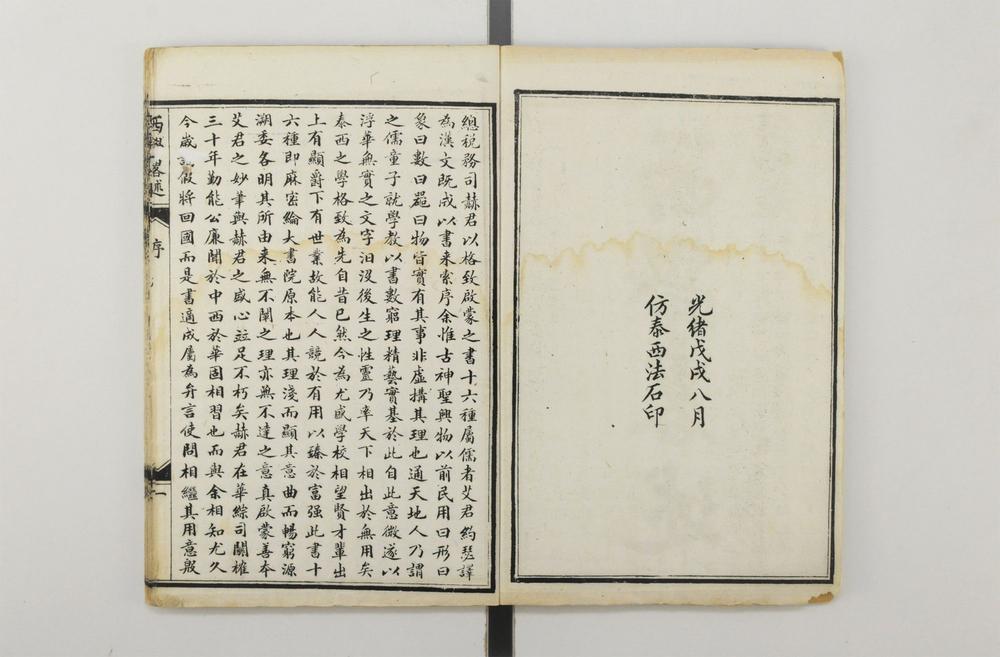 光緒戊戌八月
仿泰西法石印
總稅務司赫君以格致啟蒙之書十六種屬儒者艾君約瑟譯
為漢文既成以書來索序余惟古神聖興物以前民用曰形曰
象曰數曰器曰物皆實有其事非虛構其理也通天地人乃謂
之儒童子就學教以書數窮理精藝實基於此自此意微遂以
浮華無實之文字汩沒後生之性靈乃率天下相出於無用矣
泰西之學格致為先自昔已然今為尤盛學校相望賢才輩出
上有顯爵下有世業故能人人競於有用以臻於富强此書十
六種即麻密綸大書院原本也其理淺而顯其意曲而暢窮源
溯委各明其所由来無不闡之理亦無不達之意真啟蒙善本
艾君之妙筆與赫君之盛心竝足不朽矣赫君在華綜司關榷
三十年勤能公廉聞於中西於華固相習也而與余相知尤久
今歲 假將回國而是書適成屬為弁言使問相繼其用意殷
西 畧述
序
一